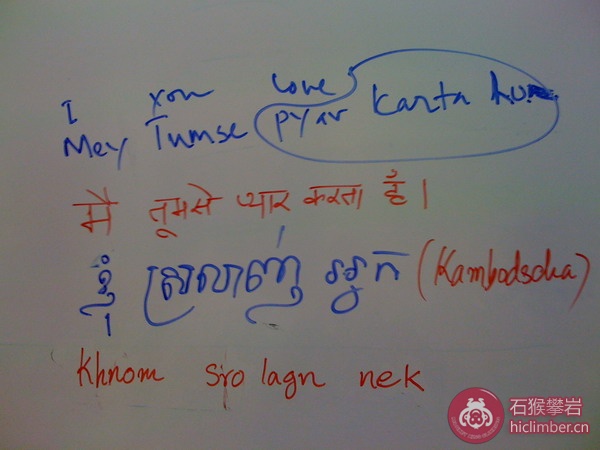 I you love
Mey Tumse pyar karta hu
मै तूमसे प्यार करता हूँ।
ខ្ញុំ ស្រលាញ់ អ្នក (Kambodscha)
Khnom Srolagn nek
石猴攀岩
hiclimber.cn